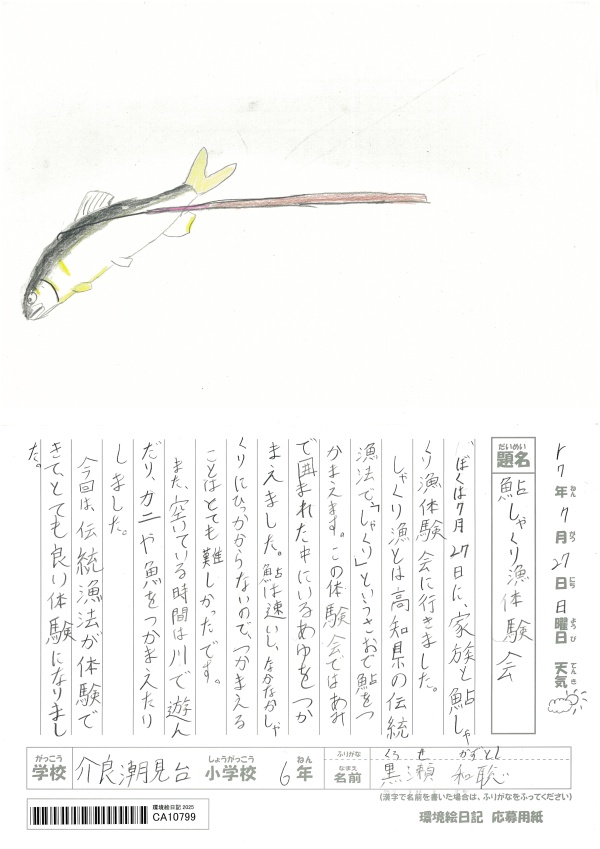 r7年ねん7月がつ27日にち日曜日ようび天気てんき
題名だいめい
鮎しゃくり漁体験会
ぼくは7月27日に、家族と鮎しゃ
くり漁体験会に行きました。
しゃくり漁とは高知県の伝統
漁法で、「しゃくり」というさおで鮎をつ
かまえます。この体験会ではあみ
で囲まれた中にいるあゆをつか
まえました。鮎は速いし、なかなかしゃ
くりにひっかからないので、つかまえる
ことはとても難しかったです。
また、空いている時間は川で遊ん
だり、カニや魚をつかまえたり
しました。
今回は、伝統漁法が体験で
きて、とても良い体験になりまし
た。
がっこう しょうがっこう ねん ふりがな くろせ かずとし
学校 介良潮見台 小学校 6年 なまえ 名前 黒瀬 和聡
(漢字で名前を書いた場合は、ふりがなをふってください)
環境絵日記 2025
CA10799
環境絵日記 応募用紙